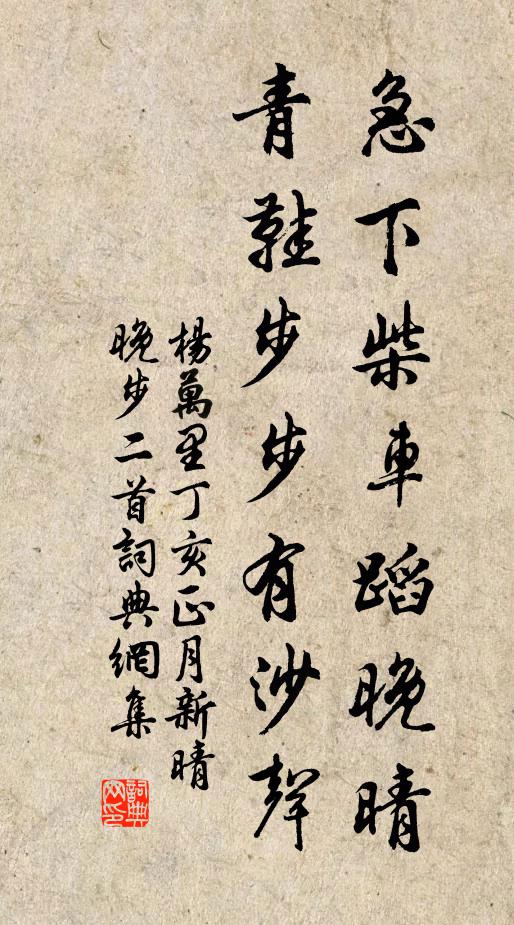 急下柴車蹈晚晴
青鞋步步有沙聲
楊萬里丁亥正月新晴
晚步二首詞典網集
詞典網印